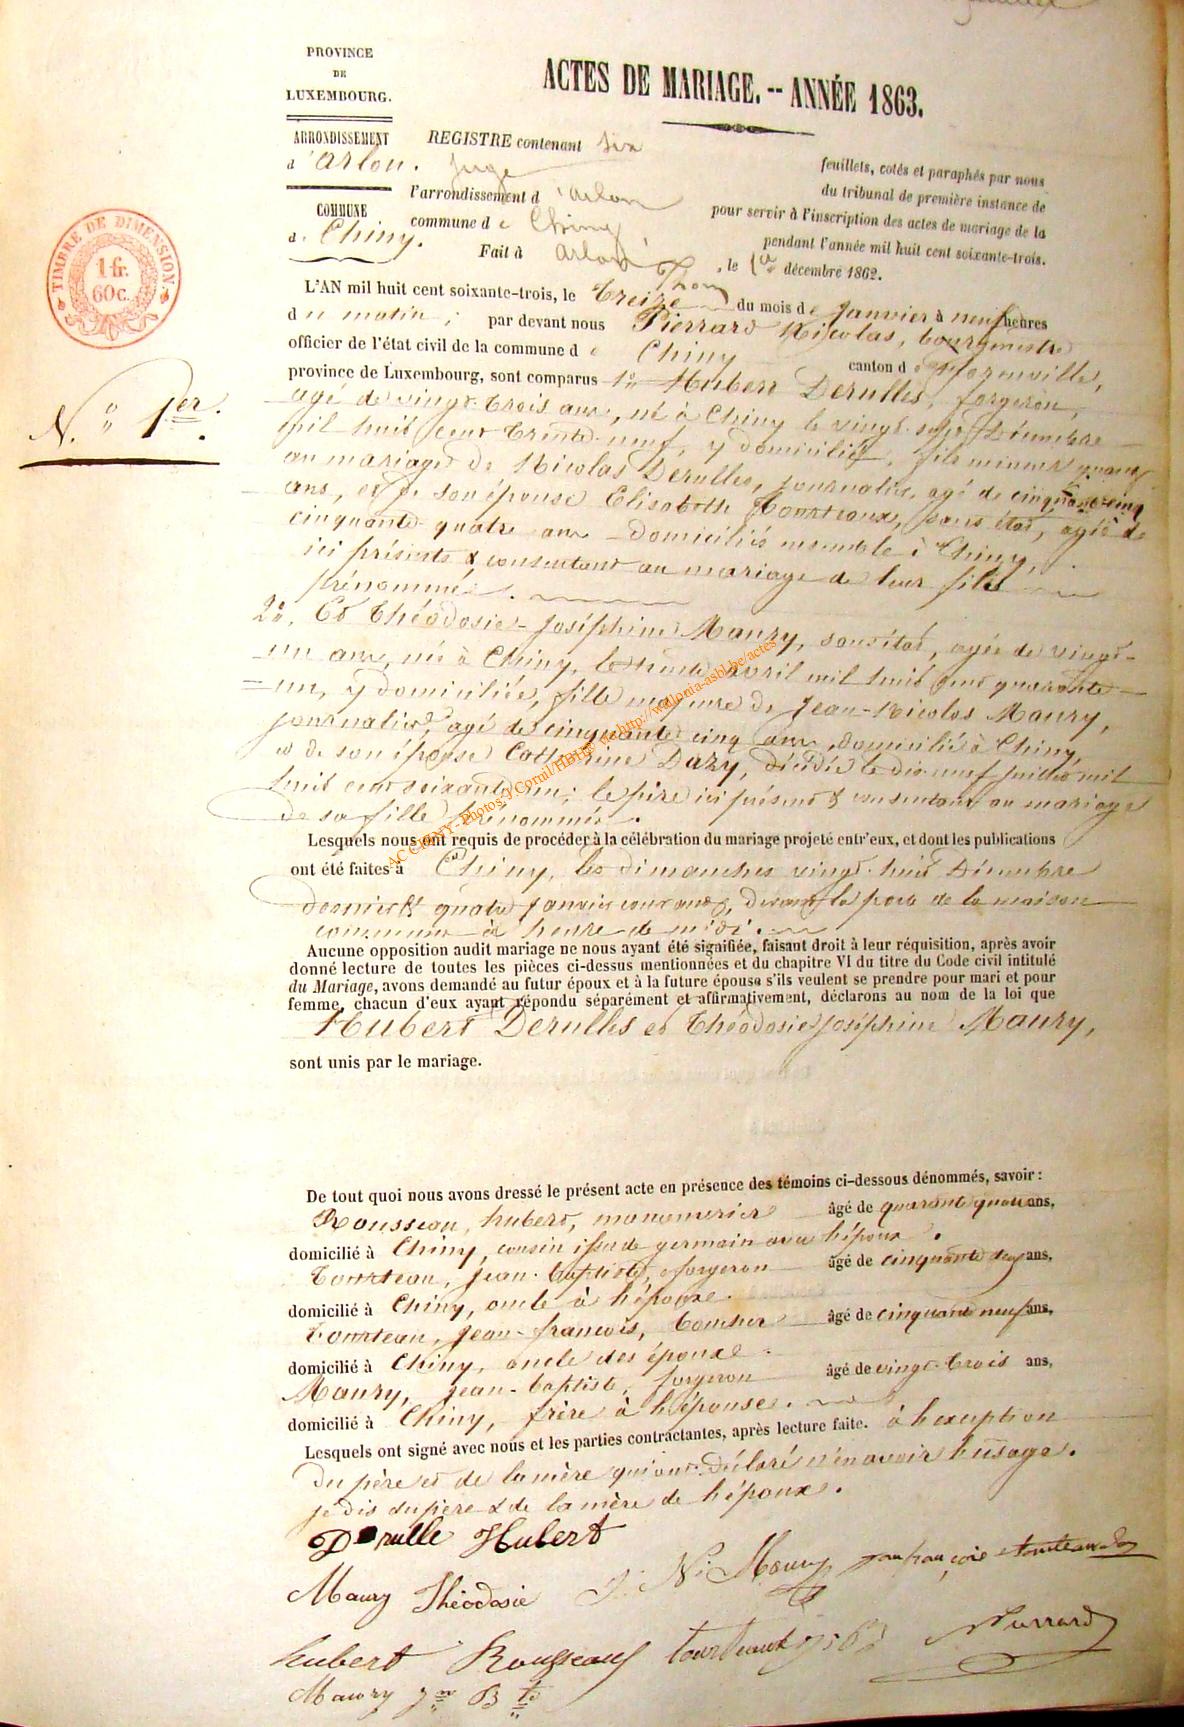 PROVINCE
DE
LUXEMBOURG.
ARRONDISSEMENT
d'Arlon.
COMMUNE
de Chiny.
TIMBRE DE DIMENSION
1 fr.
60 c.
N.° 1er.
ACTES DE MARIAGE. -- ANNÉE 1863.
REGISTRE contenant six feuillets, cotés et paraphés par nous
juge du tribunal de première instance de
l'arrondissement d'Arlon pour servir à l'inscription des actes de mariage de la
commune de Chiny pendant l'année mil huit cent soixante-trois.
Fait à Arlon, le 1er décembre 1862.
L'AN mil huit cent soixante-trois, le treize du mois de janvier à neuf heures
du matin ; par devant nous Pierrard Nicolas, bourgmestre
officier de l'état civil de la commune de Chiny canton de Florenville,
province de Luxembourg, sont comparus 1° Hubert Derulles, forgeron,
agé de vingt-trois ans, né à Chiny le vingt-sept Décembre
mil huit cent trente-neuf, y domicilié, fils mineur quant
au mariage de Nicolas Derulles, journalier, agé de cinquante-cinq
ans, et de son épouse Elisabeth Tourteaux, sans état, agée de
cinquante-quatre ans domiciliés ensemble à Chiny,
ici présents & consentant au mariage de leur fils
prénommé.
2°. Et Théodosie-Joséphine Maury, sans état, agée de vingt-
un ans, née à Chiny, le trente avril mil huit cent quarante-
=un, y domiciliée, fille majeure de Jean-Nicolas Maury,
journalier, agé de cinquante cinq ans, domicilié à Chiny
et de son épouse Catherine Dazy, décédée le dix-neuf juillet mil
huit cent soixante un ; le père ici présent & consentant au mariage
de sa fille prénommée.
AC CHINY - Photos J.Cornil/HBHP vs http://wallonia-asbl.be/actes
Lesquels nous ont requis de procéder à la célébration du mariage projeté entr'eux, et dont les publications
ont été faites à Chiny, les dimanches vingt-huit Décembre
dernier & quatre janvier courant, devant la porte de la maison
commune à heure de midi.
Aucune opposition audit mariage ne nous ayant été signifiée, faisant droit à leur réquisition, après avoir
donné lecture de toutes les pièces ci-dessus mentionnées et du chapitre VI du titre du Code civil intitulé
du Mariage, avons demandé au futur époux et à la future épouse s'ils veulent se prendre pour mari et pour
femme, chacun d'eux ayant répondu séparément et affirmativement, déclarons au nom de la loi que
Hubert Derulles et Théodosie Joséphine Maury,
sont unis par le mariage.
De tout quoi nous avons dressé le présent acte en présence des témoins ci-dessous dénommés, savoir :
Rousseau, hubert, manouvrier âgé de quarante quatre ans,
domicilié à Chiny, cousin issu de germain avec l'époux.
Tourteau, jean-baptiste, forgeron âgé de cinquante deux ans,
domicilié à Chiny, oncle à l'époux.
Tourteau, jean-françois, âgé de cinquante neuf ans,
domicilié à Chiny, oncle des époux.
Maury, jean-baptiste, forgeron âgé de vingt-trois ans,
domicilié à Chiny, frère à l'épouse.
Lesquels ont signé avec nous et les parties contractantes, après lecture faite. à l'exception
du père et de la mère qui ont déclaré n'en avoir l'usage.
je dis du père & de la mère de l'époux.
Derulle Hubert
Maury Théodosie J. N. Maury jean françois tourteau
hubert Rousseau tourteaux j B Pierrard
Maury jn B te